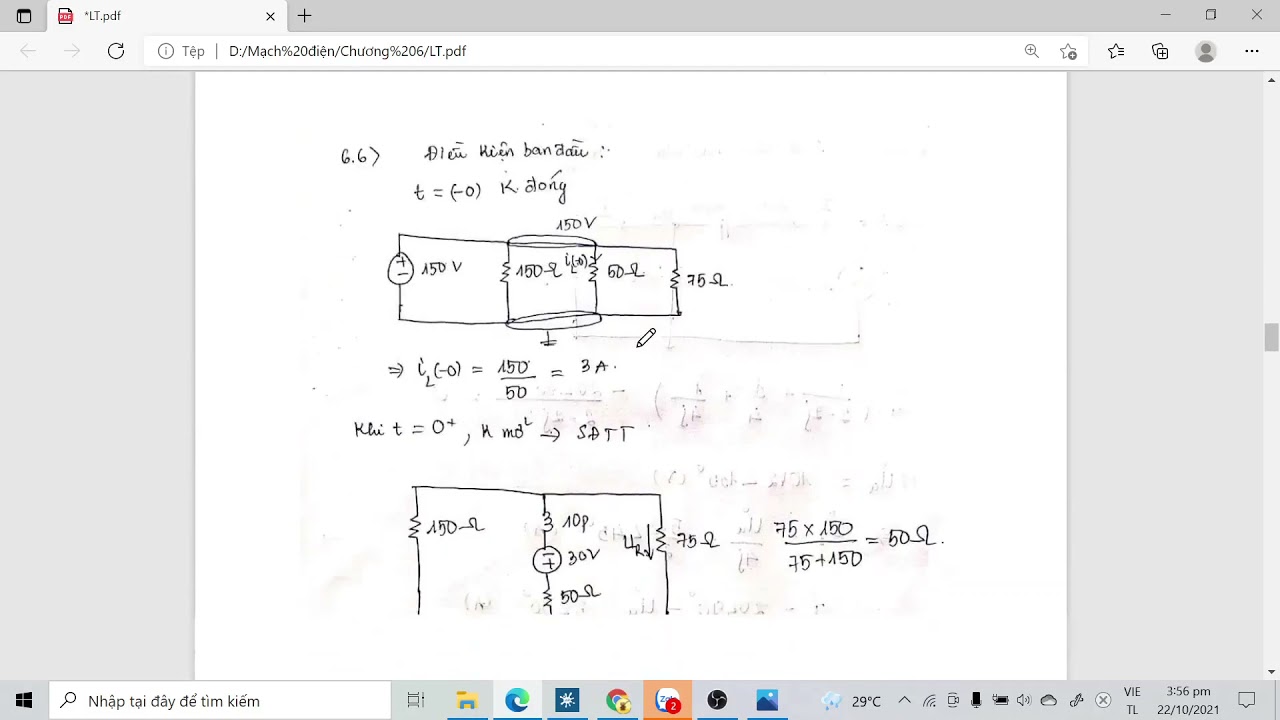 *LT.pdf
Tệp
D:/Mạch%20điện/Chương%206/LT.pdf
6.6) Điều kiện ban đầu :
t = (-0) K đóng
150V
150 V
150Ω
i_L(-0)
50Ω
75Ω
=> i_L(-0) = 150/50 = 3A.
Khi t = 0⁺, K mở → SĐTT
150Ω
10p
30V
50Ω
U_R
75Ω
75 x 150 / 75+150 = 50Ω.
Nhập tại đây để tìm kiếm
2
29°C
VIE
TL
3:56 pm
22/10/2021